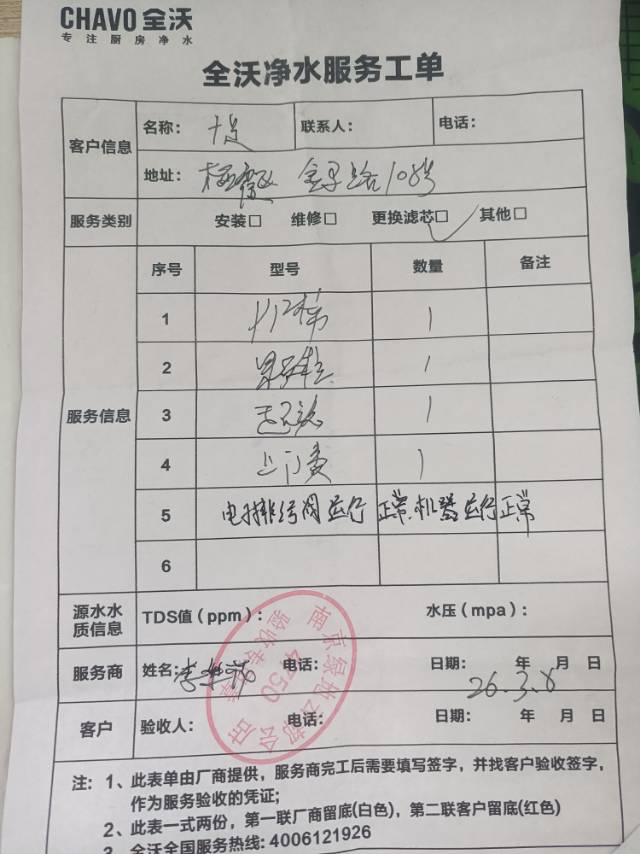 CHAVO 全沃
专注厨房净水
全沃净水服务工单
客户信息
名称： 联系人： 电话：
地址： 栖霞区 108号
服务类别 安装□ 维修□ 更换滤芯□ 其他□
服务信息
序号 型号 数量 备注
1 1
2 1
3 1
4 上门费 1
5 电排污阀运行正常.机器运行正常
6
源水水质信息 TDS值（ppm）： 水压（mpa）：
服务商 姓名： 电话： 日期： 年 月 日
26.3.6
客户 验收人： 电话： 日期： 年 月 日
南京绿地云都会店
4750
验收专用章
注：1、此表单由厂商提供，服务商完工后需要填写签字，并找客户验收签字，
作为服务验收的凭证；
2、此表一式两份，第一联厂商留底(白色)，第二联客户留底(红色)
3、全沃全国服务热线：4006121926